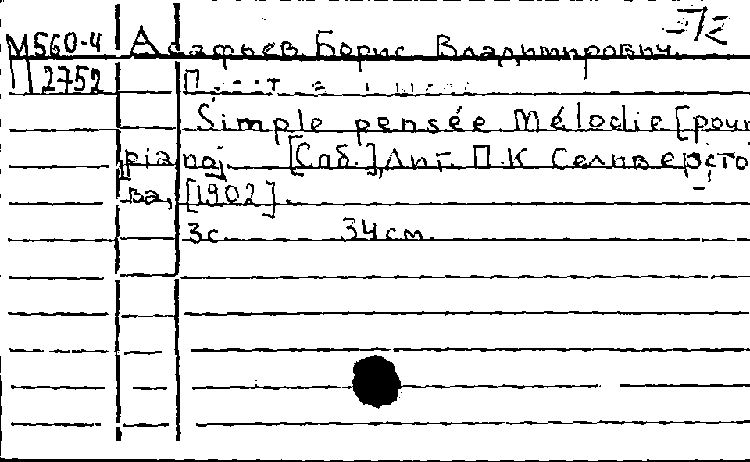 М560-4 Асафьев Борис Владимирович.
2752
Simple pensée Mélodie [pour
piano]. [Спб.], Лит. П.К Селиверсто
ва, [1902].
3с. 34см.